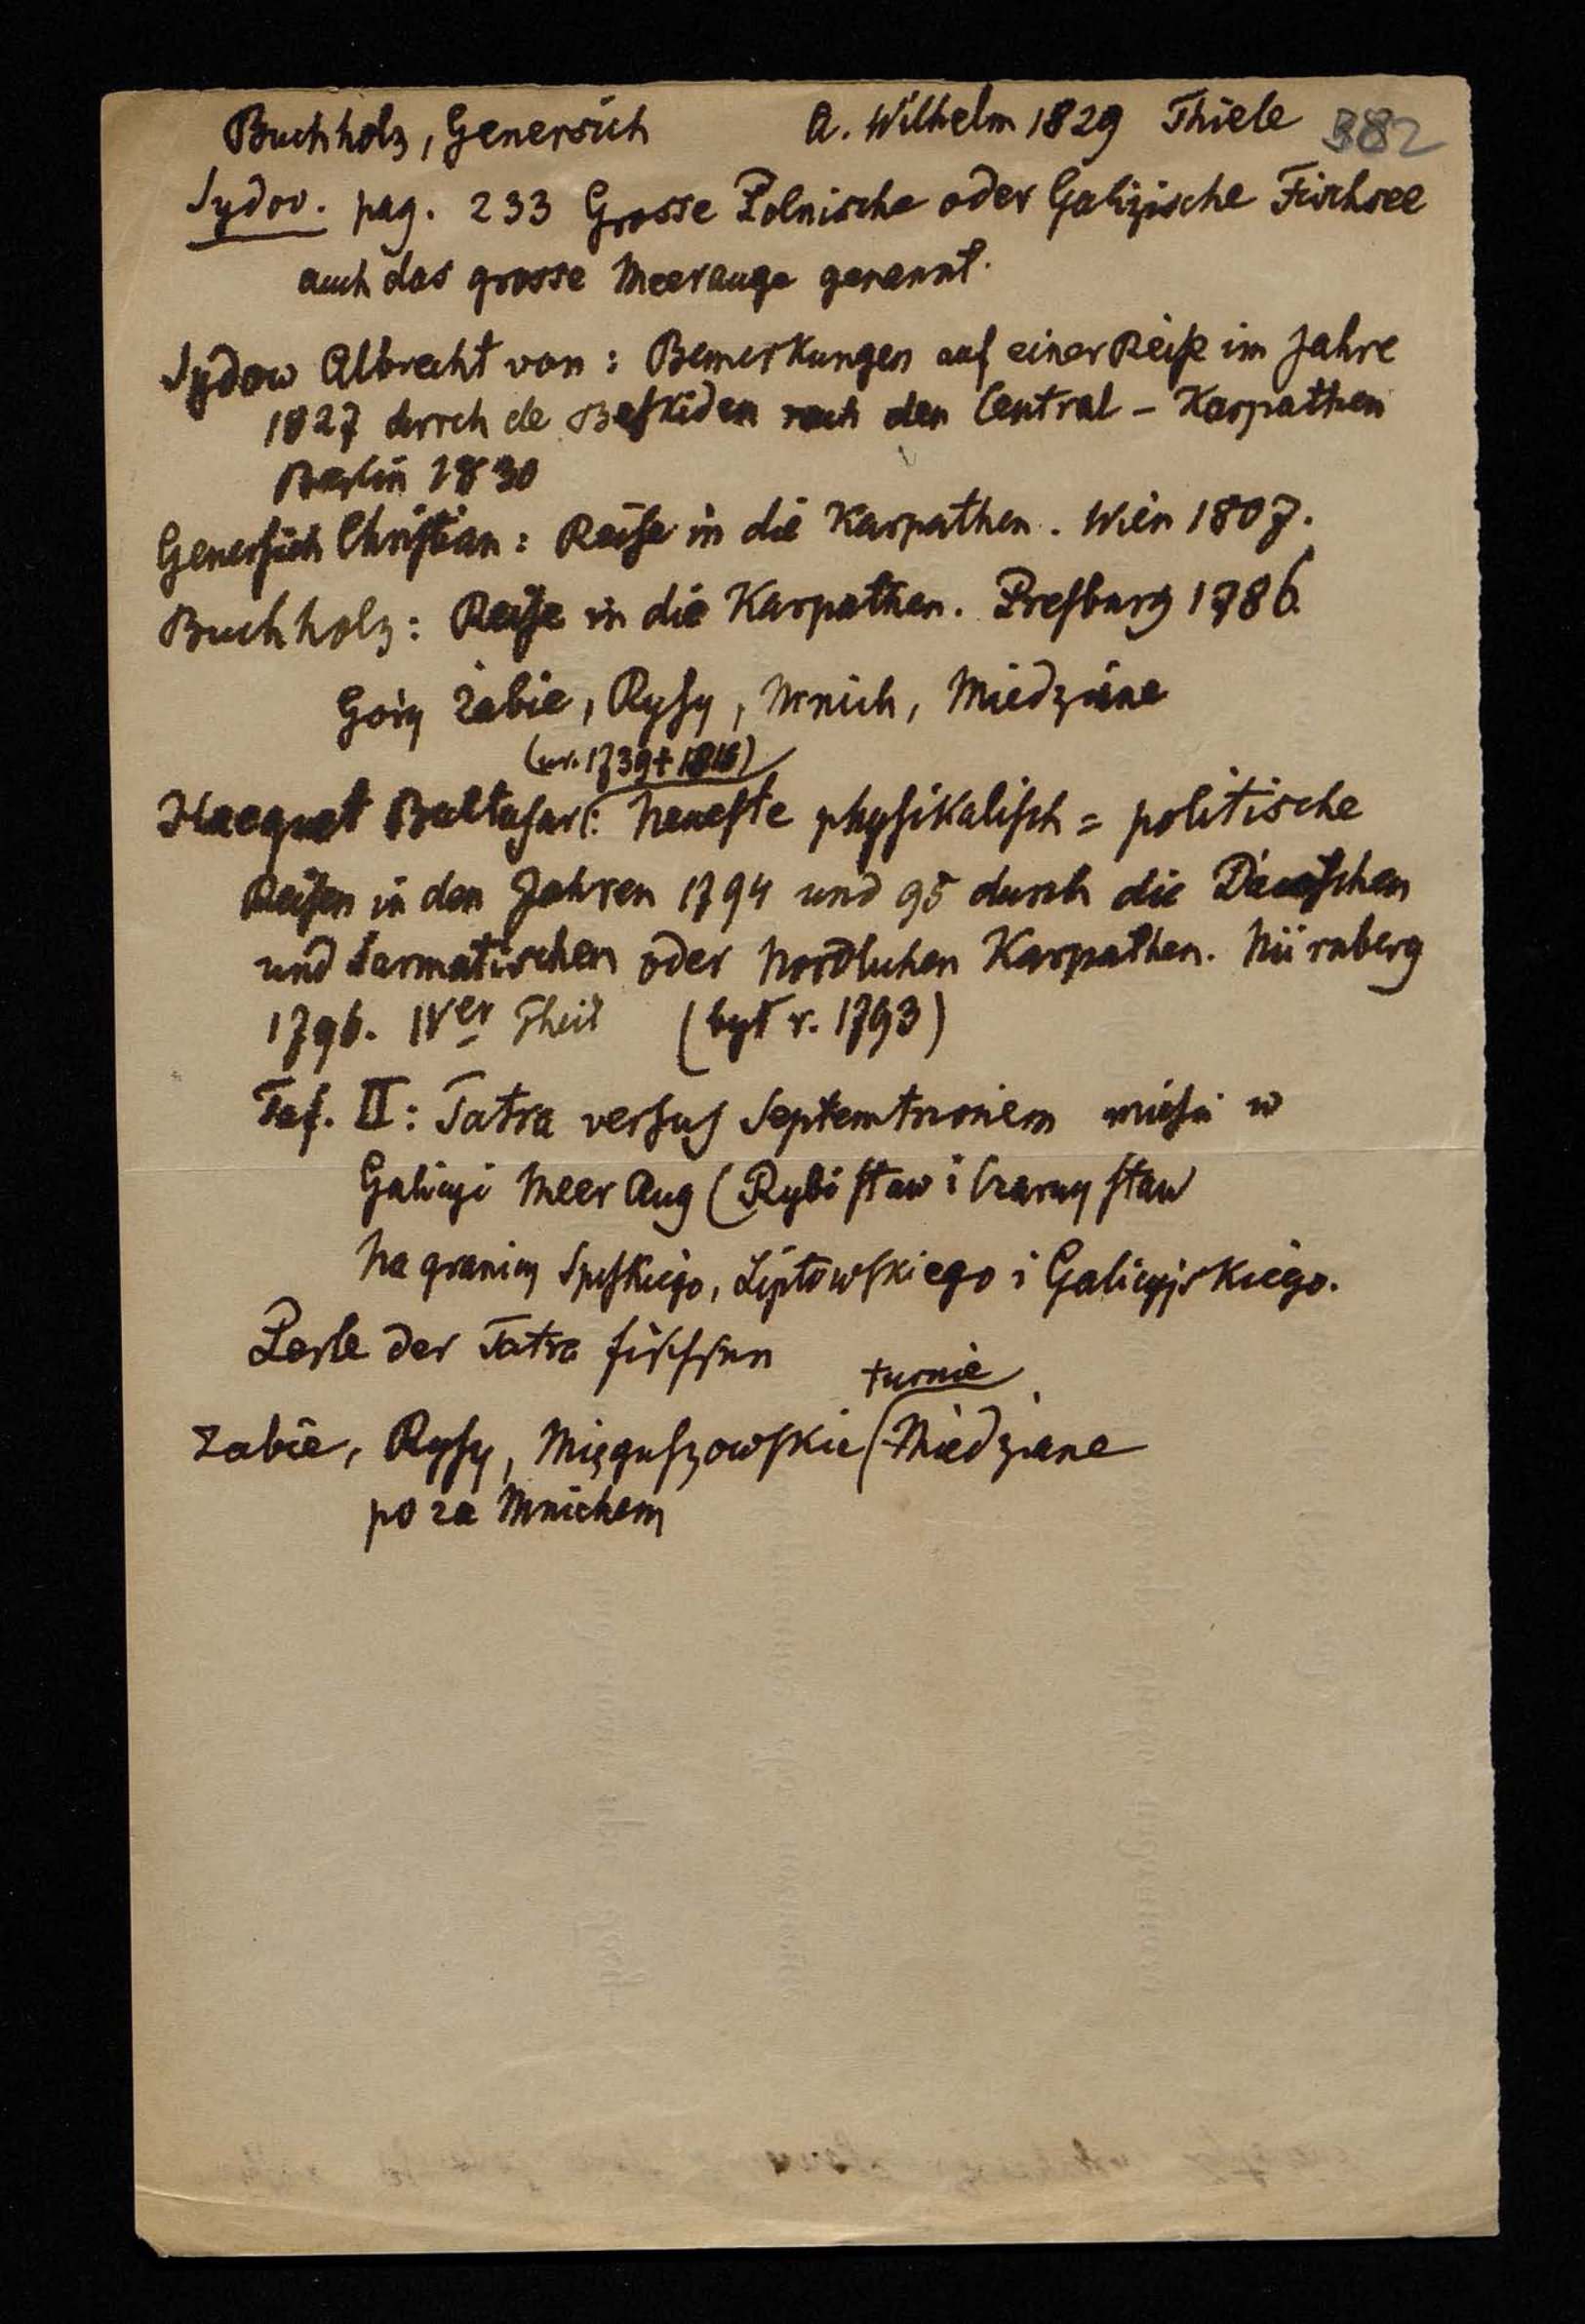 Buchholz, Genersich A. Wilhelm 1829 Thiele 382
Sydov. pag. 233 Grosse Polnische oder Galizische Fischsee
auch das grosse Meerauge genannt.
Sydow Albrecht von: Bemerkungen auf einer Reise im Jahre
1827 durch de Beskiden nach den Central - Karpathen
Berlin 1830
Genersich Christian: Reise in die Karpathen. Wien 1807.
Buchholz: Reise in die Karpathen. Presburg 1786.
Góry Żabie, Rysy, Mnich, Miedziane
(ur. 1739 + 1815)
Hacquet Baltasar: Neueste physikalisch = politische
Reisen in den Jahren 1794 und 95 durch die Dacischen
und Sarmatischen oder Nordlichen Karpathen. Nürnberg
1796. IVer Theil (był r. 1793)
Taf. II: Tatra versus Septemtrionem mieści w
Galicyi Meer Aug (Rybi staw i Czarny staw
Na granicy Spiskiego, Liptowskiego i Galicyjskiego.
Perle der Tatra
turnie
Żabie, Rysy, Mięguszowskie (Miedziane
po za Mnichem